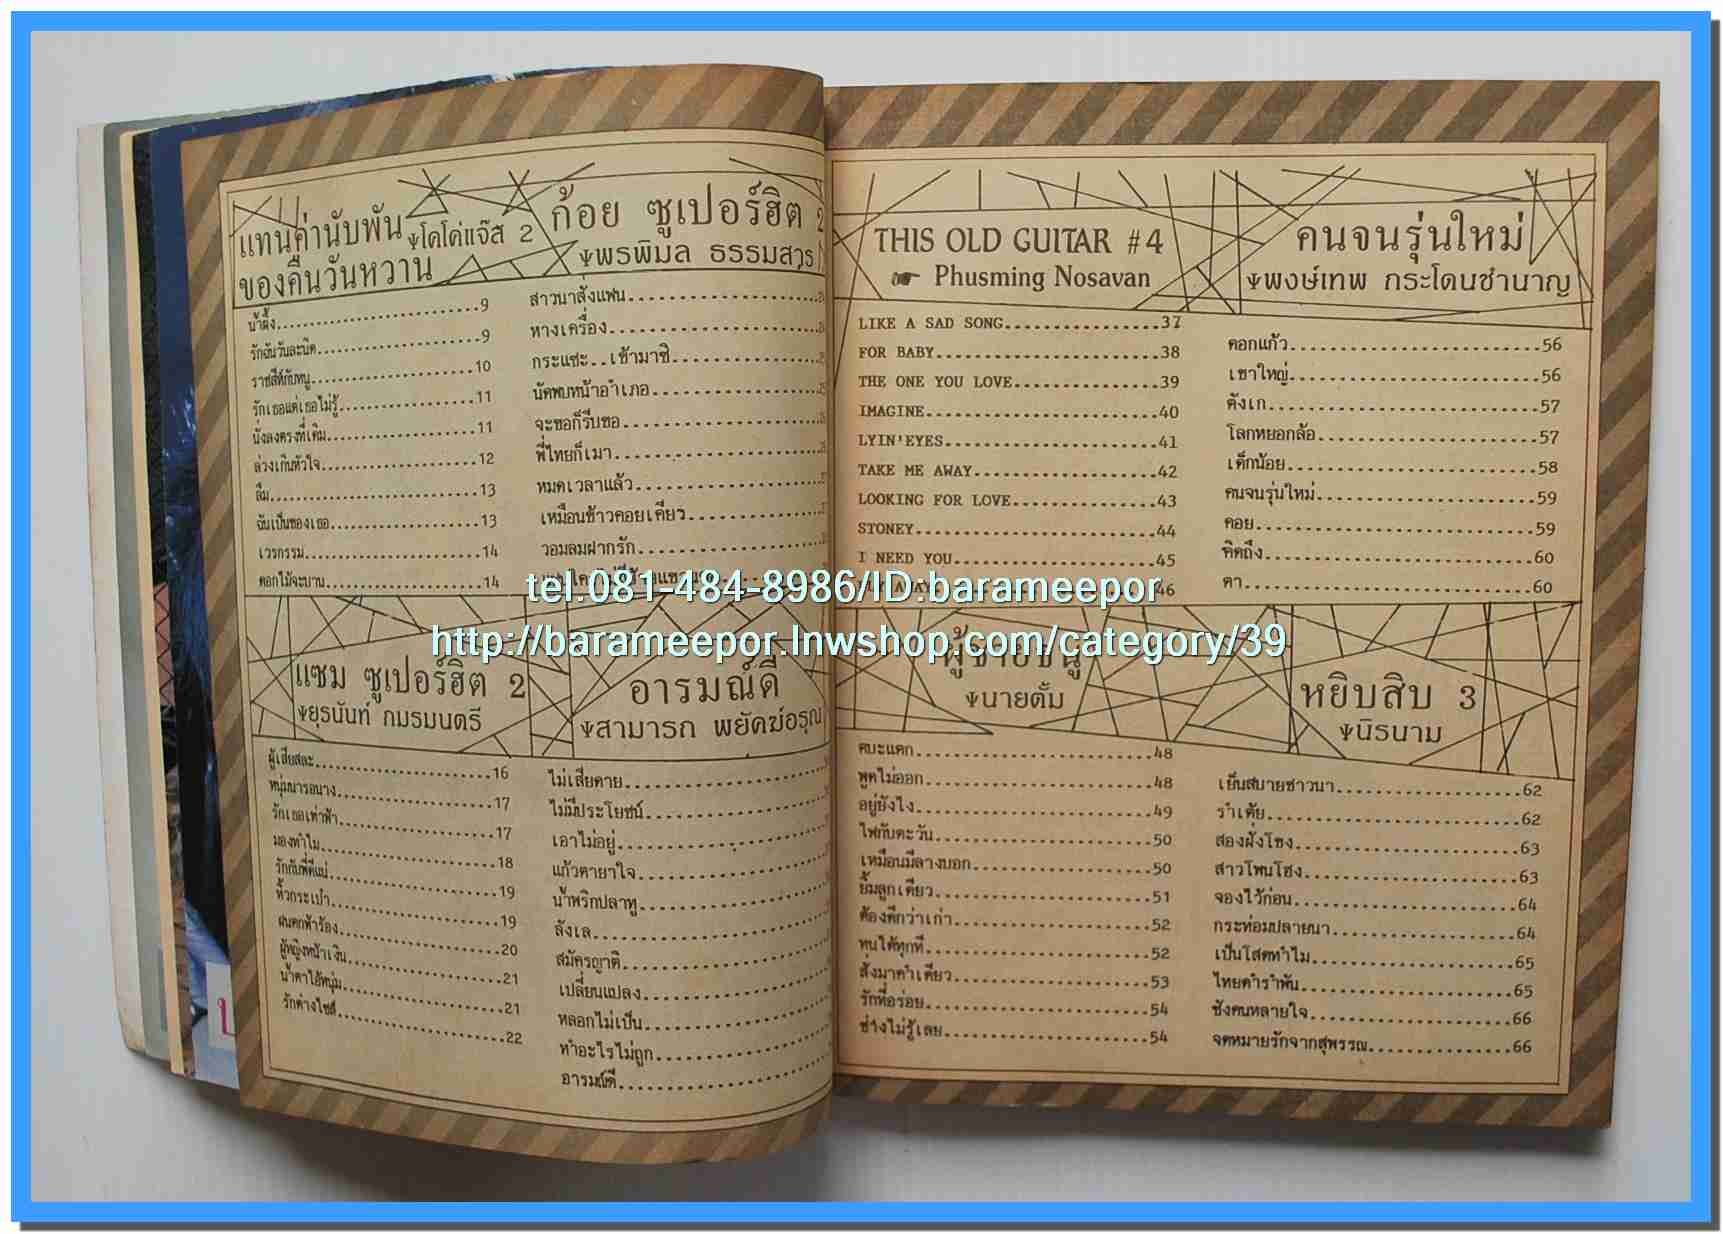 แทนค่านับพัน
ของคืนวันหวาน
โคโค่แจ๊ส 2
น้ำผึ้ง 9
รักฉันวันละนิด 9
ราชสีห์กับหนู 10
รักเธอแต่เธอไม่รู้ 11
นั่งลงตรงที่เดิม 11
ล่วงเกินหัวใจ 12
ลืม 13
ฉันเป็นของเธอ 13
เวรกรรม 14
ดอกไม้จะบาน 14
ก้อย ซูเปอร์ฮิต 2
พรพิมล ธรรมสาร
สาวนาสั่งแฟน
หางเครื่อง
กระแซะ..เข้ามาซิ
นัดพบหน้าอำเภอ
จะขอก็รีบขอ
พี่ไทยก็เมา
หมดเวลาแล้ว
เหมือนข้าวคอยเคียว
วอนลมฝากรัก
แซม ซูเปอร์ฮิต 2
ยุรนันท์ ภมรมนตรี
ผู้เสียสละ 16
หนุ่มนารอนาง 17
รักเธอเท่าฟ้า 17
มองทำไม 18
รักกับพี่ดีแน่ 19
หิ้วกระเป๋า 19
ฝนตกฟ้าร้อง 20
ผู้หญิงหน้าเงิน 21
น้ำตาไอ้หนุ่ม 21
รักต่างไซส์ 22
อารมณ์ดี
สามารถ พยัคฆ์อรุณ
ไม่เสียดาย
ไม่มีประโยชน์
เอาไม่อยู่
แก้วตายาใจ
น้ำพริกปลาทู
ลังเล
สมัครญาติ
เปลี่ยนแปลง
หลอกไม่เป็น
ทำอะไรไม่ถูก
อารมณ์ดี
THIS OLD GUITAR #4
Phusming Nosavan
LIKE A SAD SONG 37
FOR BABY 38
THE ONE YOU LOVE 39
IMAGINE 40
LYIN'EYES 41
TAKE ME AWAY 42
LOOKING FOR LOVE 43
STONEY 44
I NEED YOU 45
46
คนจนรุ่นใหม่
พงษ์เทพ กระโดนชำนาญ
ดอกแก้ว 56
เขาใหญ่ 56
ตังเก 57
โลกหยอกล้อ 57
เด็กน้อย 58
คนจนรุ่นใหม่ 59
คอย 59
คิดถึง 60
ตา 60
tel.081-484-8986/ID:barameepor
http://barameepor.lnwshop.com/category/39
นายตั้ม
ตบะแตก 48
พูดไม่ออก 48
อยู่ยังไง 49
ไฟกับตะวัน 50
เหมือนมีลางบอก 50
ยิ้มลูกเดียว 51
ต้องดีกว่าเก่า 52
ทนได้ทุกที 52
สั่งมาคำเดียว 53
รักที่อร่อย 54
ช่างไม่รู้เลย 54
หยิบสิบ 3
นิรนาม
เย็นสบายชาวนา 62
รำเตัย 62
สองฝั่งโขง 63
สาวโพนโฮง 63
จองไว้ก่อน 64
กระท่อมปลายนา 64
เป็นโสดทำไม 65
ไทยดำรำพัน 65
ชังคนหลายใจ 66
จดหมายรักจากสุพรรณ 66